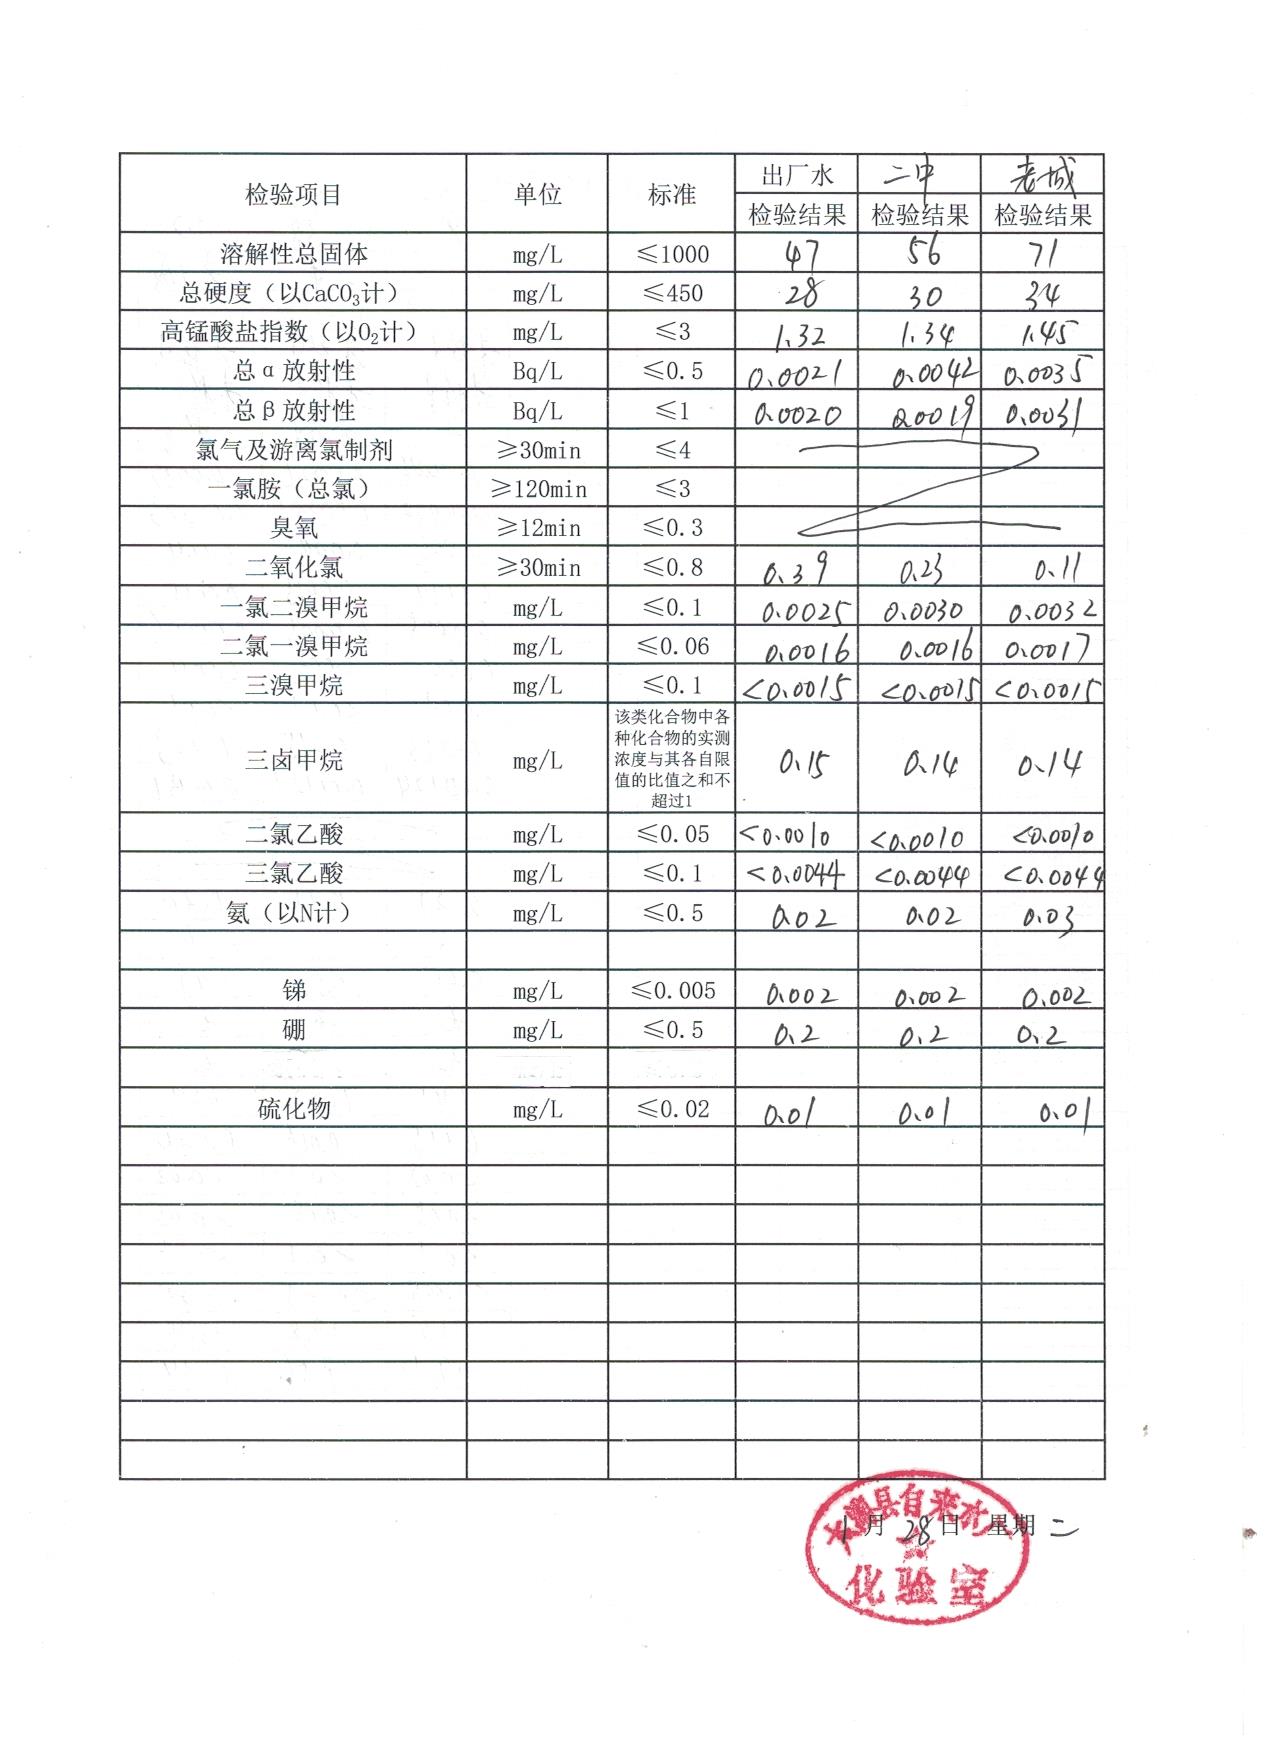 检验项目 单位 标准 出厂水 二中 老城
检验结果 检验结果 检验结果
溶解性总固体 mg/L ≤1000 47 56 71
总硬度（以CaCO₃计） mg/L ≤450 28 30 34
高锰酸盐指数（以O₂计） mg/L ≤3 1.32 1.34 1.45
总α放射性 Bq/L ≤0.5 0.0021 0.0042 0.0035
总β放射性 Bq/L ≤1 0.0020 0.0019 0.0031
氯气及游离氯制剂 ≥30min ≤4
一氯胺（总氯） ≥120min ≤3
臭氧 ≥12min ≤0.3
二氧化氯 ≥30min ≤0.8 0.39 0.23 0.11
一氯二溴甲烷 mg/L ≤0.1 0.0025 0.0030 0.0032
二氯一溴甲烷 mg/L ≤0.06 0.0016 0.0016 0.0017
三溴甲烷 mg/L ≤0.1 <0.0015 <0.0015 <0.0015
三卤甲烷 mg/L 该类化合物中各
种化合物的实测
浓度与其各自限
值的比值之和不
超过1 0.15 0.14 0.14
二氯乙酸 mg/L ≤0.05 <0.0010 <0.0010 <0.0010
三氯乙酸 mg/L ≤0.1 <0.0044 <0.0044 <0.0044
氨（以N计） mg/L ≤0.5 0.02 0.02 0.03
锑 mg/L ≤0.005 0.002 0.002 0.002
硼 mg/L ≤0.5 0.2 0.2 0.2
硫化物 mg/L ≤0.02 0.01 0.01 0.01
县自来水
1月28日 星期二
化验室